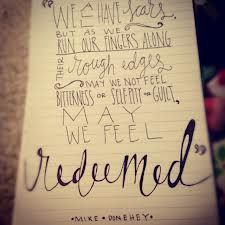 "WE ALL HAVE scars
BUT AS WE
RUN OUR FINGERS ALONG
THEIR rough edges
MAY WE NOT FEEL
BITTERNESS OR SELF-PITY OR GUILT,
MAY
WE FEEL
redeemed"
• MIKE • DONEHEY •